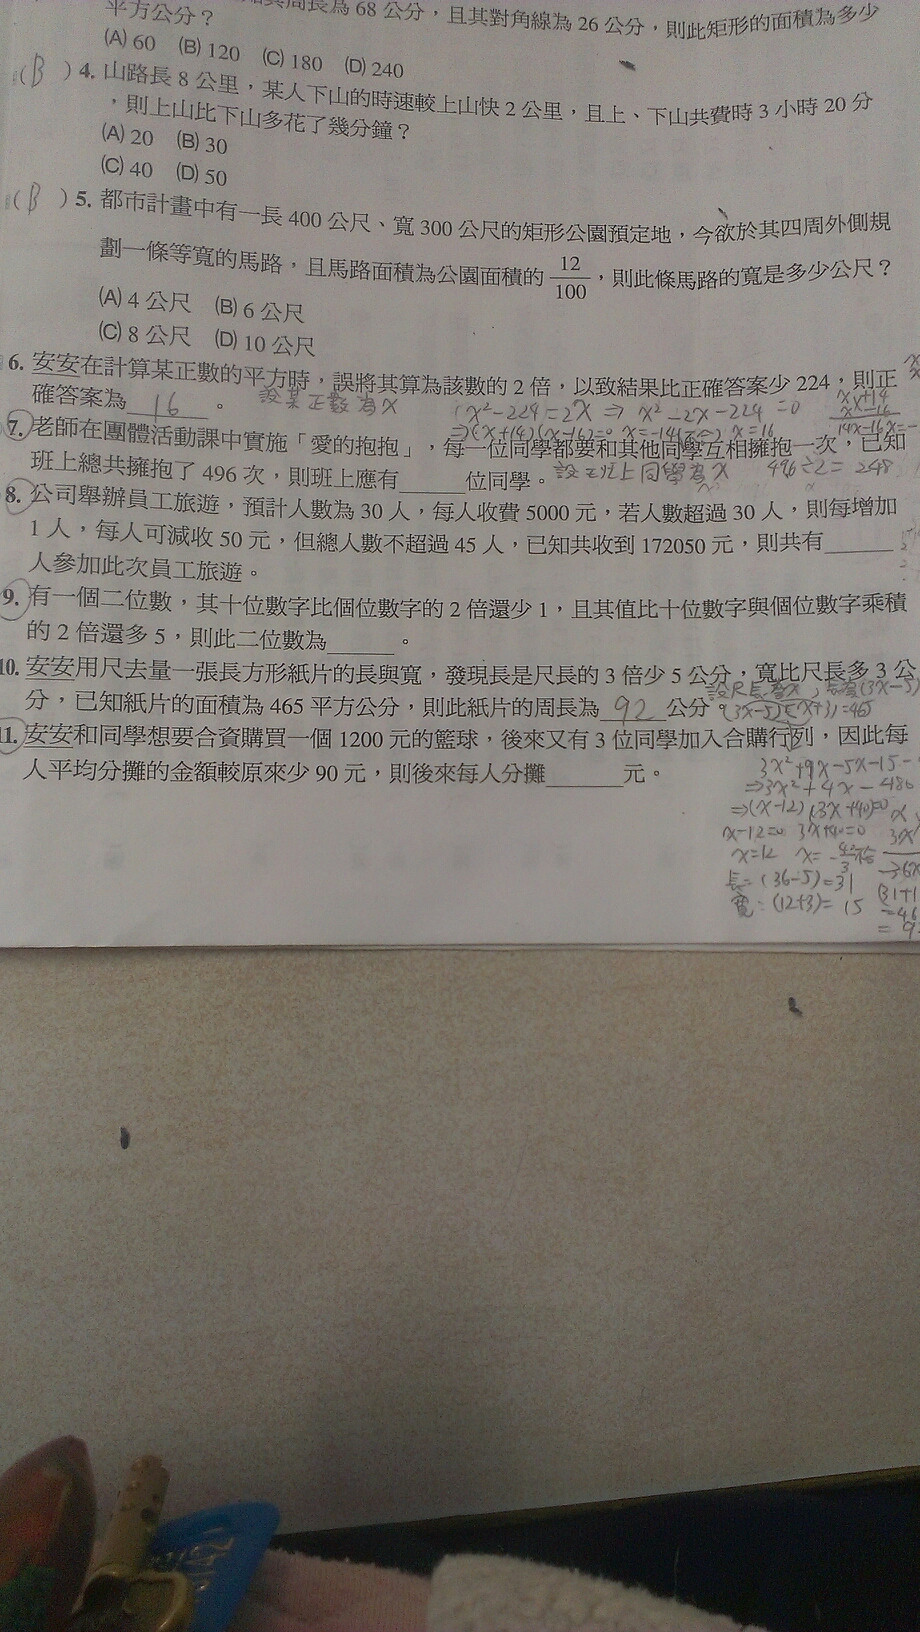 周長為 68 公分，且其對角線為 26 公分，則此矩形的面積為多少
平方公分？
(A) 60 (B) 120 (C) 180 (D) 240
( B ) 4. 山路長 8 公里，某人下山的時速較上山快 2 公里，且上、下山共費時 3 小時 20 分
，則上山比下山多花了幾分鐘？
(A) 20 (B) 30
(C) 40 (D) 50
( B ) 5. 都市計畫中有一長 400 公尺、寬 300 公尺的矩形公園預定地，今欲於其四周外側規
劃一條等寬的馬路，且馬路面積為公園面積的 12/100，則此條馬路的寬是多少公尺？
(A) 4 公尺 (B) 6 公尺
(C) 8 公尺 (D) 10 公尺
6. 安安在計算某正數的平方時，誤將其算為該數的 2 倍，以致結果比正確答案少 224，則正
確答案為 16 。 設某正數為x x²-224=2x ⇒ x²-2x-224=0
⇒(x+14)(x-16)=0 x=-14(不合) x=16
x +14
x -16
14x-16x=-
7. 老師在團體活動課中實施「愛的抱抱」，每一位同學都要和其他同學互相擁抱一次，已知
班上總共擁抱了 496 次，則班上應有______位同學。 設班上同學為x 496÷2=248
8. 公司舉辦員工旅遊，預計人數為 30 人，每人收費 5000 元，若人數超過 30 人，則每增加
1 人，每人可減收 50 元，但總人數不超過 45 人，已知共收到 172050 元，則共有______
人參加此次員工旅遊。
9. 有一個二位數，其十位數字比個位數字的 2 倍還少 1，且其值比十位數字與個位數字乘積
的 2 倍還多 5，則此二位數為______。
10. 安安用尺去量一張長方形紙片的長與寬，發現長是尺長的 3 倍少 5 公分，寬比尺長多 3 公
分，已知紙片的面積為 465 平方公分，則此紙片的周長為 92 公分。
設尺長為x，長為(3x-5)
(3x-5)(x+3)=465
11. 安安和同學想要合資購買一個 1200 元的籃球，後來又有 3 位同學加入合購行列，因此每
人平均分攤的金額較原來少 90 元，則後來每人分攤______元。
3x²+9x-5x-15-
⇒3x²+4x-480
⇒(x-12)(3x+40)=0
x-12=0 3x+40=0
x=12 x=-40/3不合
長=(36-5)=31
寬:(12+3)=15
(31+1
=46
= 9